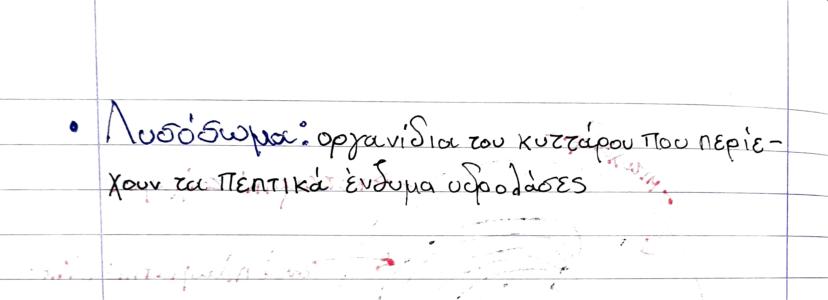 • Λυσόσωμα: οργανίδια του κυττάρου που περιέ-
χουν τα πεπτικά ένζυμα υδρολάσες